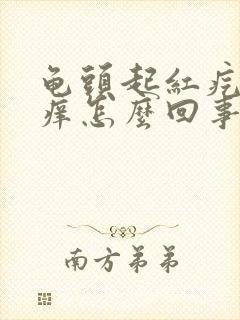 龟頭起紅疙
痒怎麽回事
南方弟弟